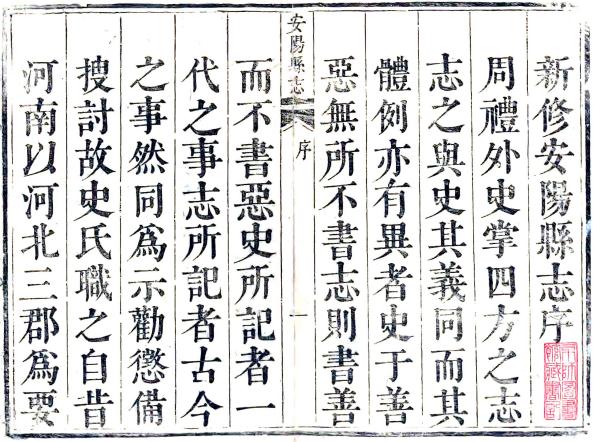 新修安陽縣志序
周禮外史掌四方之志
志之與史其義同而其
體例亦有異者史于善
惡無所不書志則書善
安陽縣志 序 一
而不書惡史所記者一
代之事志所記者古今
之事然同爲示勸懲備
搜討故史氏職之自昔
河南以河北三郡爲要